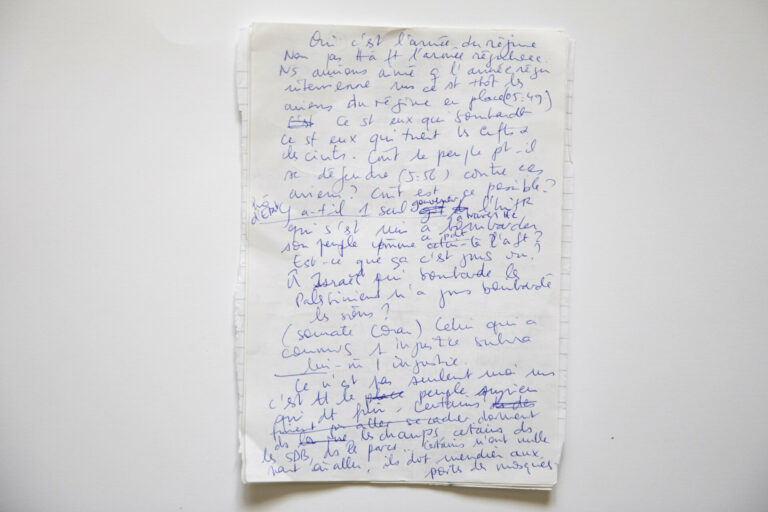 Oui c'est l'armée du régime
Non pas tt à ft l'armée régulière.
Ns aurions aimé q l'armée régu
intervienne mais ce st les
avions du régime en place (05:49)
C'est Ce st eux qui bombardent
Ce st eux qui tuent les enfts &
les civils. Cmt le peuple pt-il
se défendre (5:56) contre ces
avions? Cmt est ce possible?
d'Etat Y a-t-il 1 seul gouverneur
qui s'est mis à bombarder
son peuple comme l'a ft?
Est-ce que ça c'est jms vu?
Israël qui bombarde les
Palestiniens n'a jms bombardé
les siens?
(sourate Coran) Celui qui a
commis 1 injustice subira
lui-m 1 injustice.
Ce n'est pas seulement moi ms
c'est tt le peuple syrien
qui dt fuir. Certains
aller se cacher dorment
ds les champs, certains ds
les SDB, ds le parcs. Certains n'ont nulle
part où aller, ils dvt mendier aux
portes les mosquées